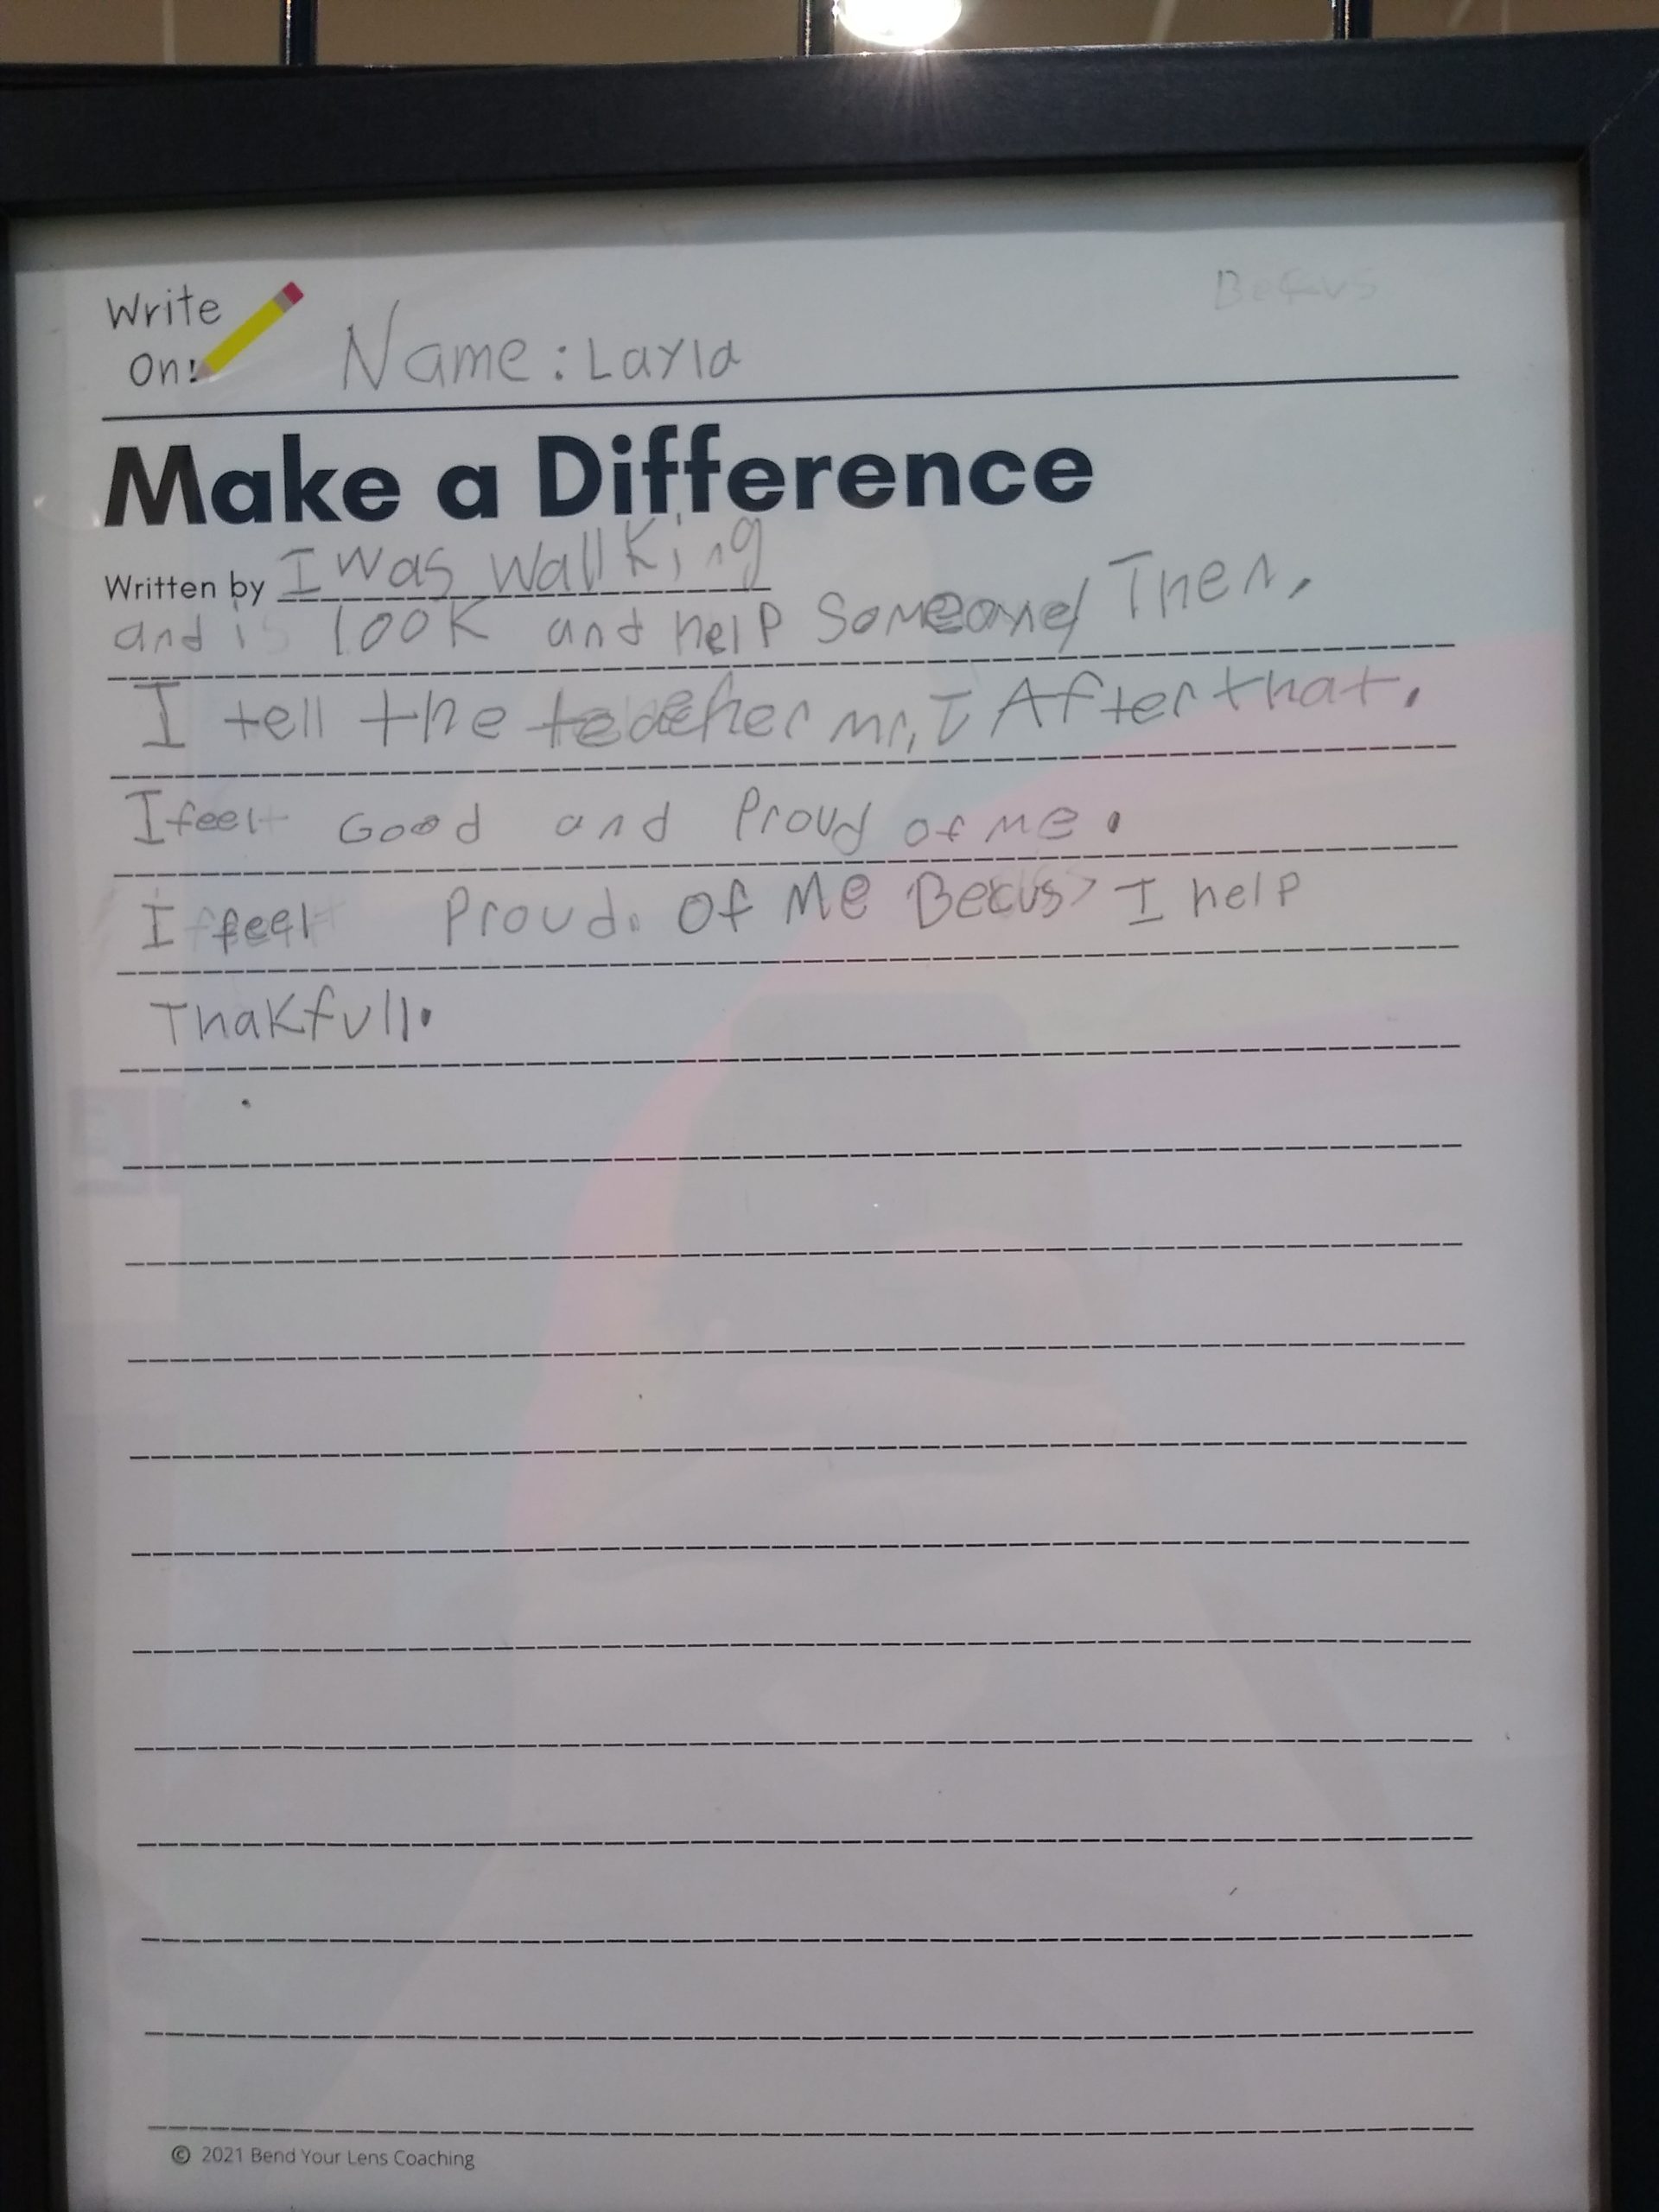 Becus
Write
On!
Name: Layla
Make a Difference
Written by I was wallking
and is look and help Someone Then,
I tell the teacher mr, T After that.
I feel Good and Proud of me.
I feel Proud. Of Me Becus I help
Thakfull.
© 2021 Bend Your Lens Coaching